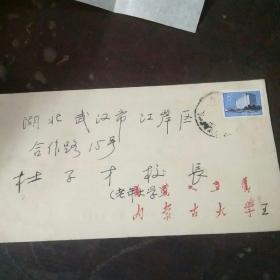 湖北武汉市江岸区
合作路15号
杜子才校長
(老年大学)
内蒙古大学王